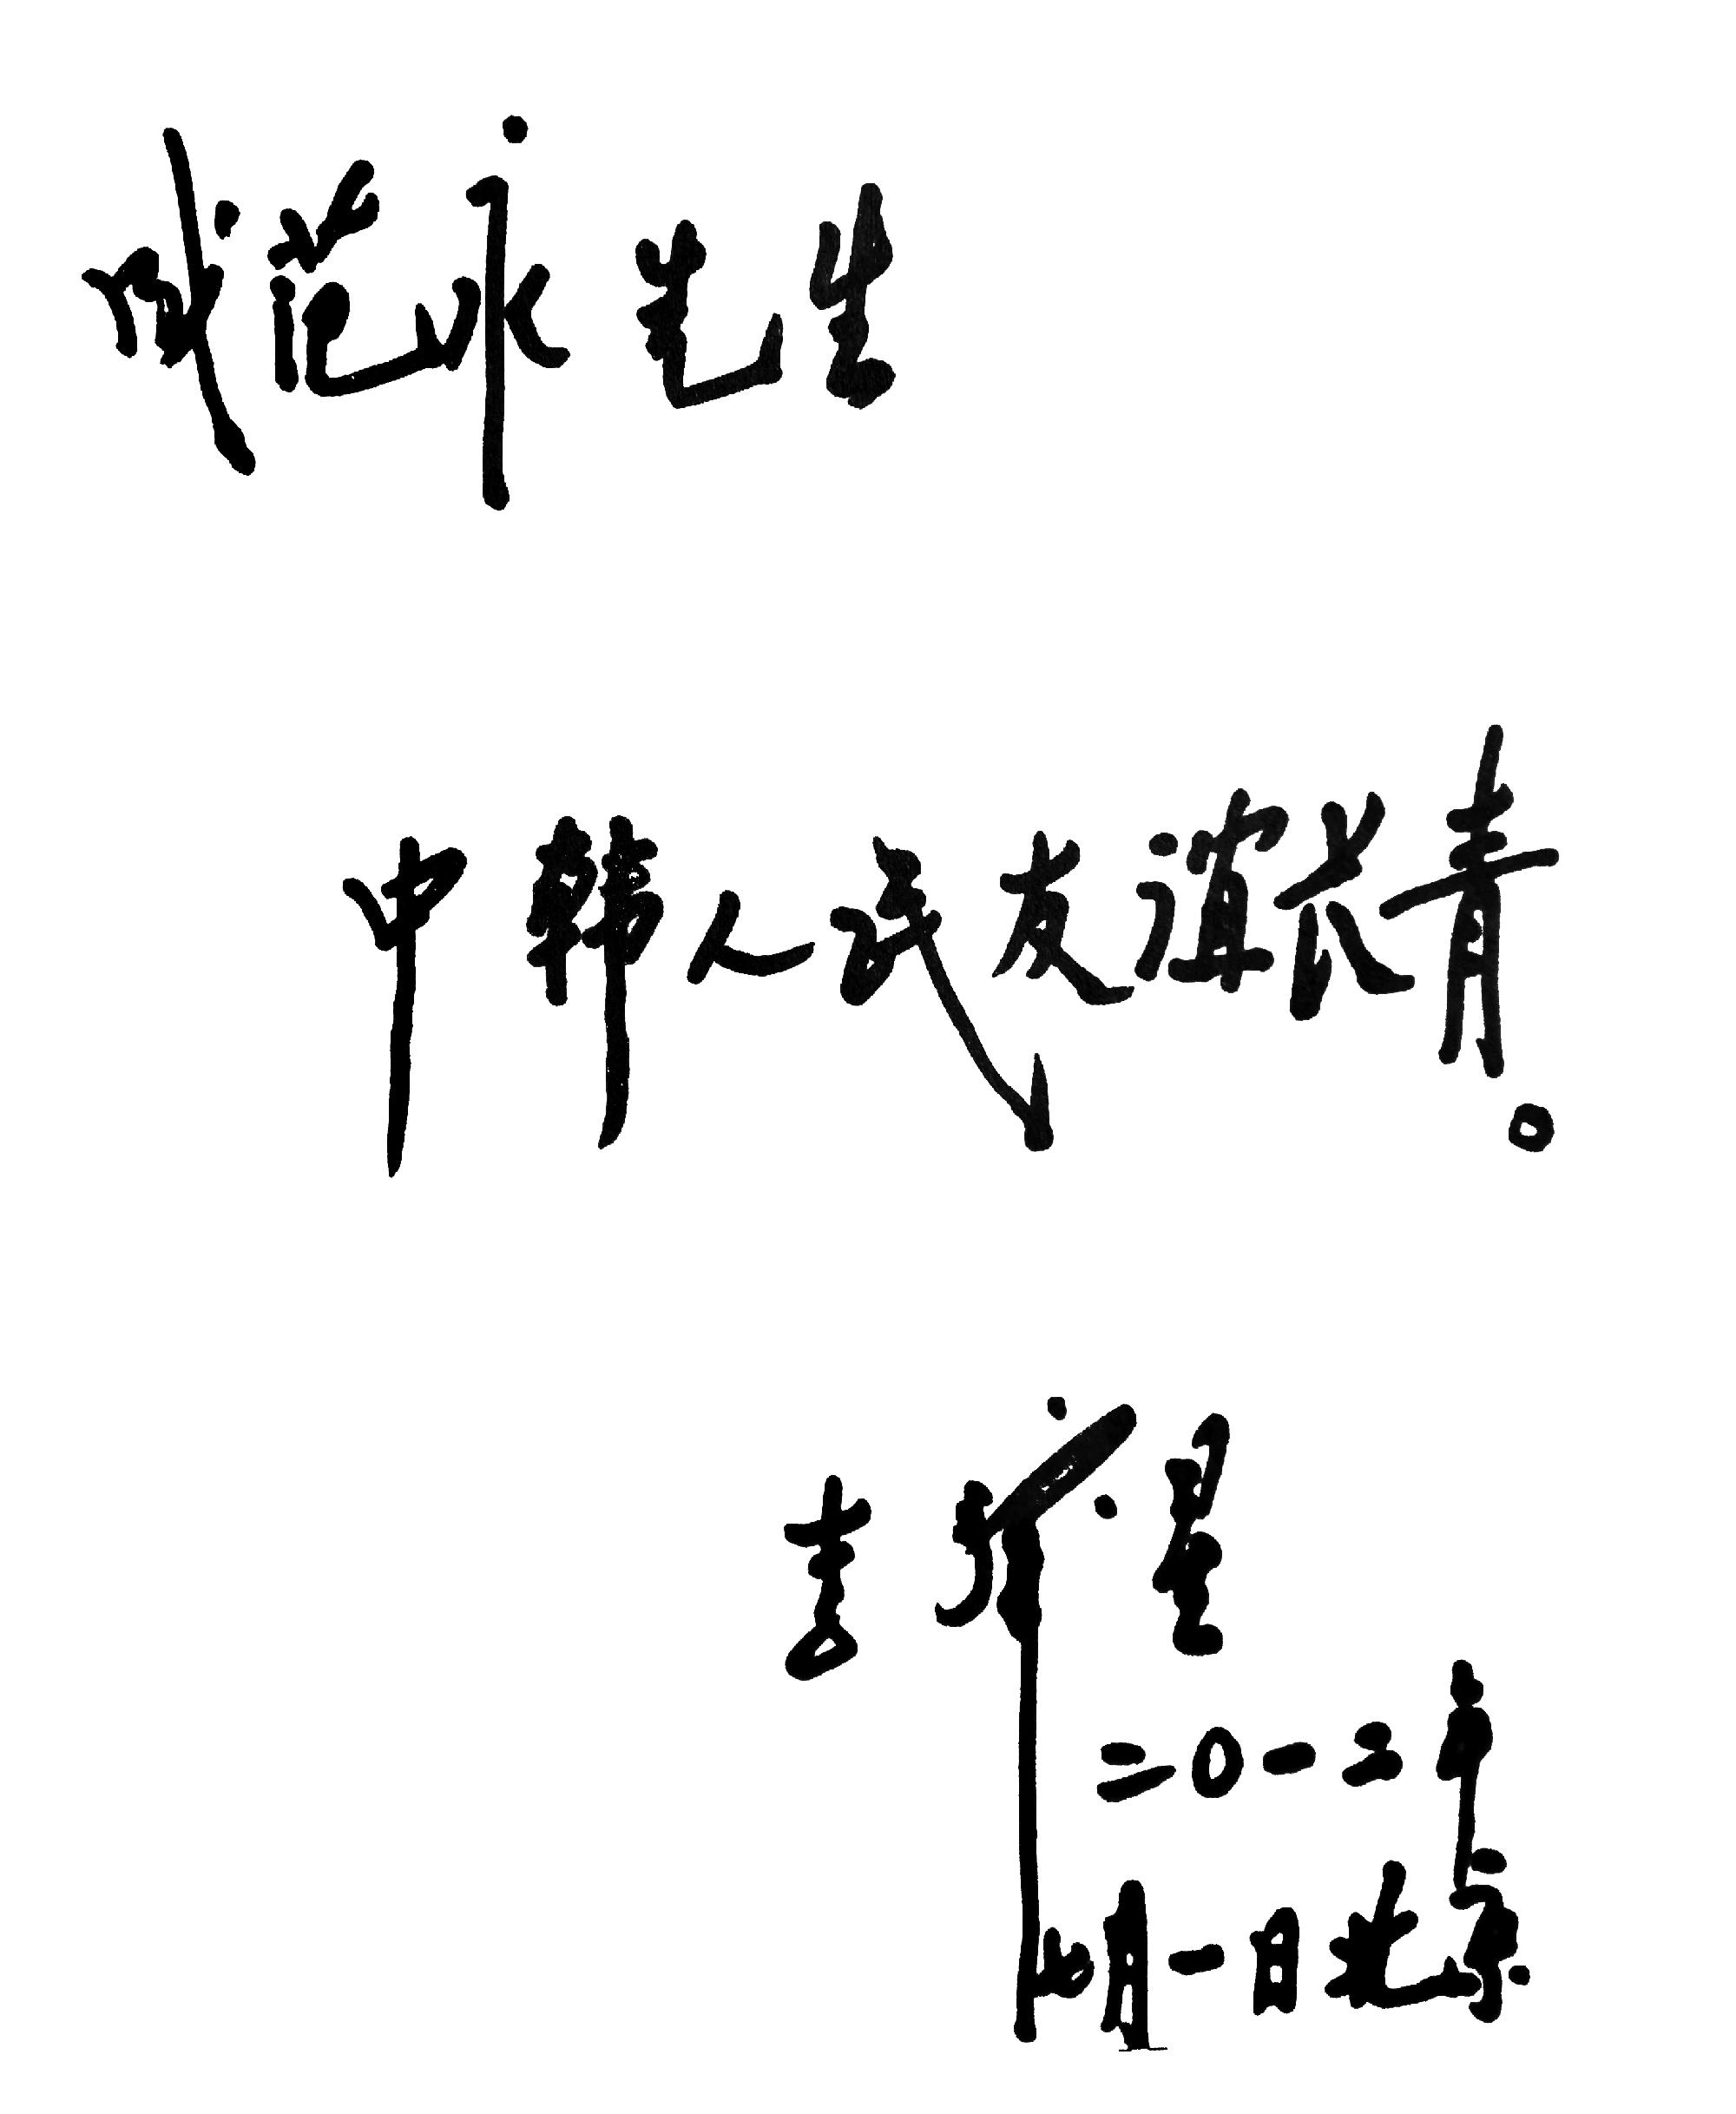 成范永先生
中韩人民友谊长青。
李肇星
二〇一二年
四月一日北京